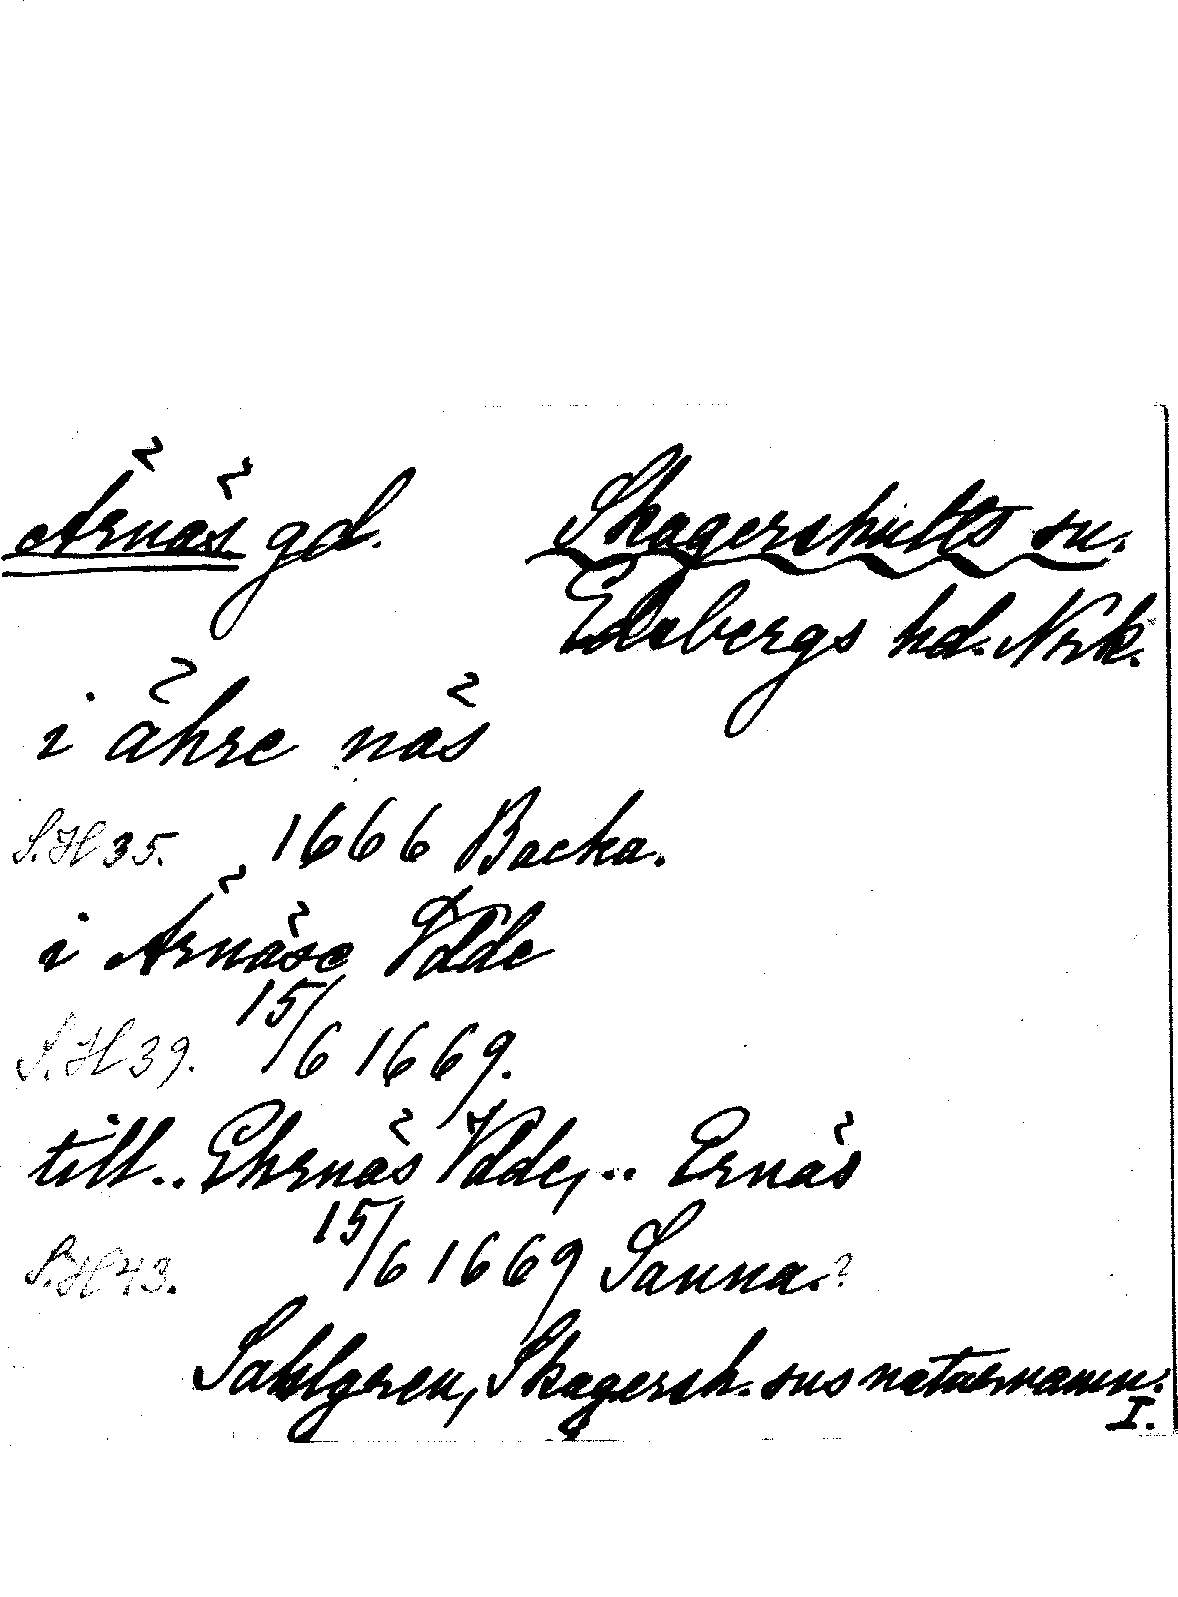 Ärnäs gd. Skagershults sn.
Edsbergs hd. Nrk.
i ähre näs
S.H 35. 1666 Backa.
i Ärnäse Udde
S.H 39. 15/6 1669.
till.. Ehrnäs Udde,.. Ernäs
S.H 43. 15/6 1669 Sanna.?
Sahlgren, Skagersh. sns naturnamn.
I.